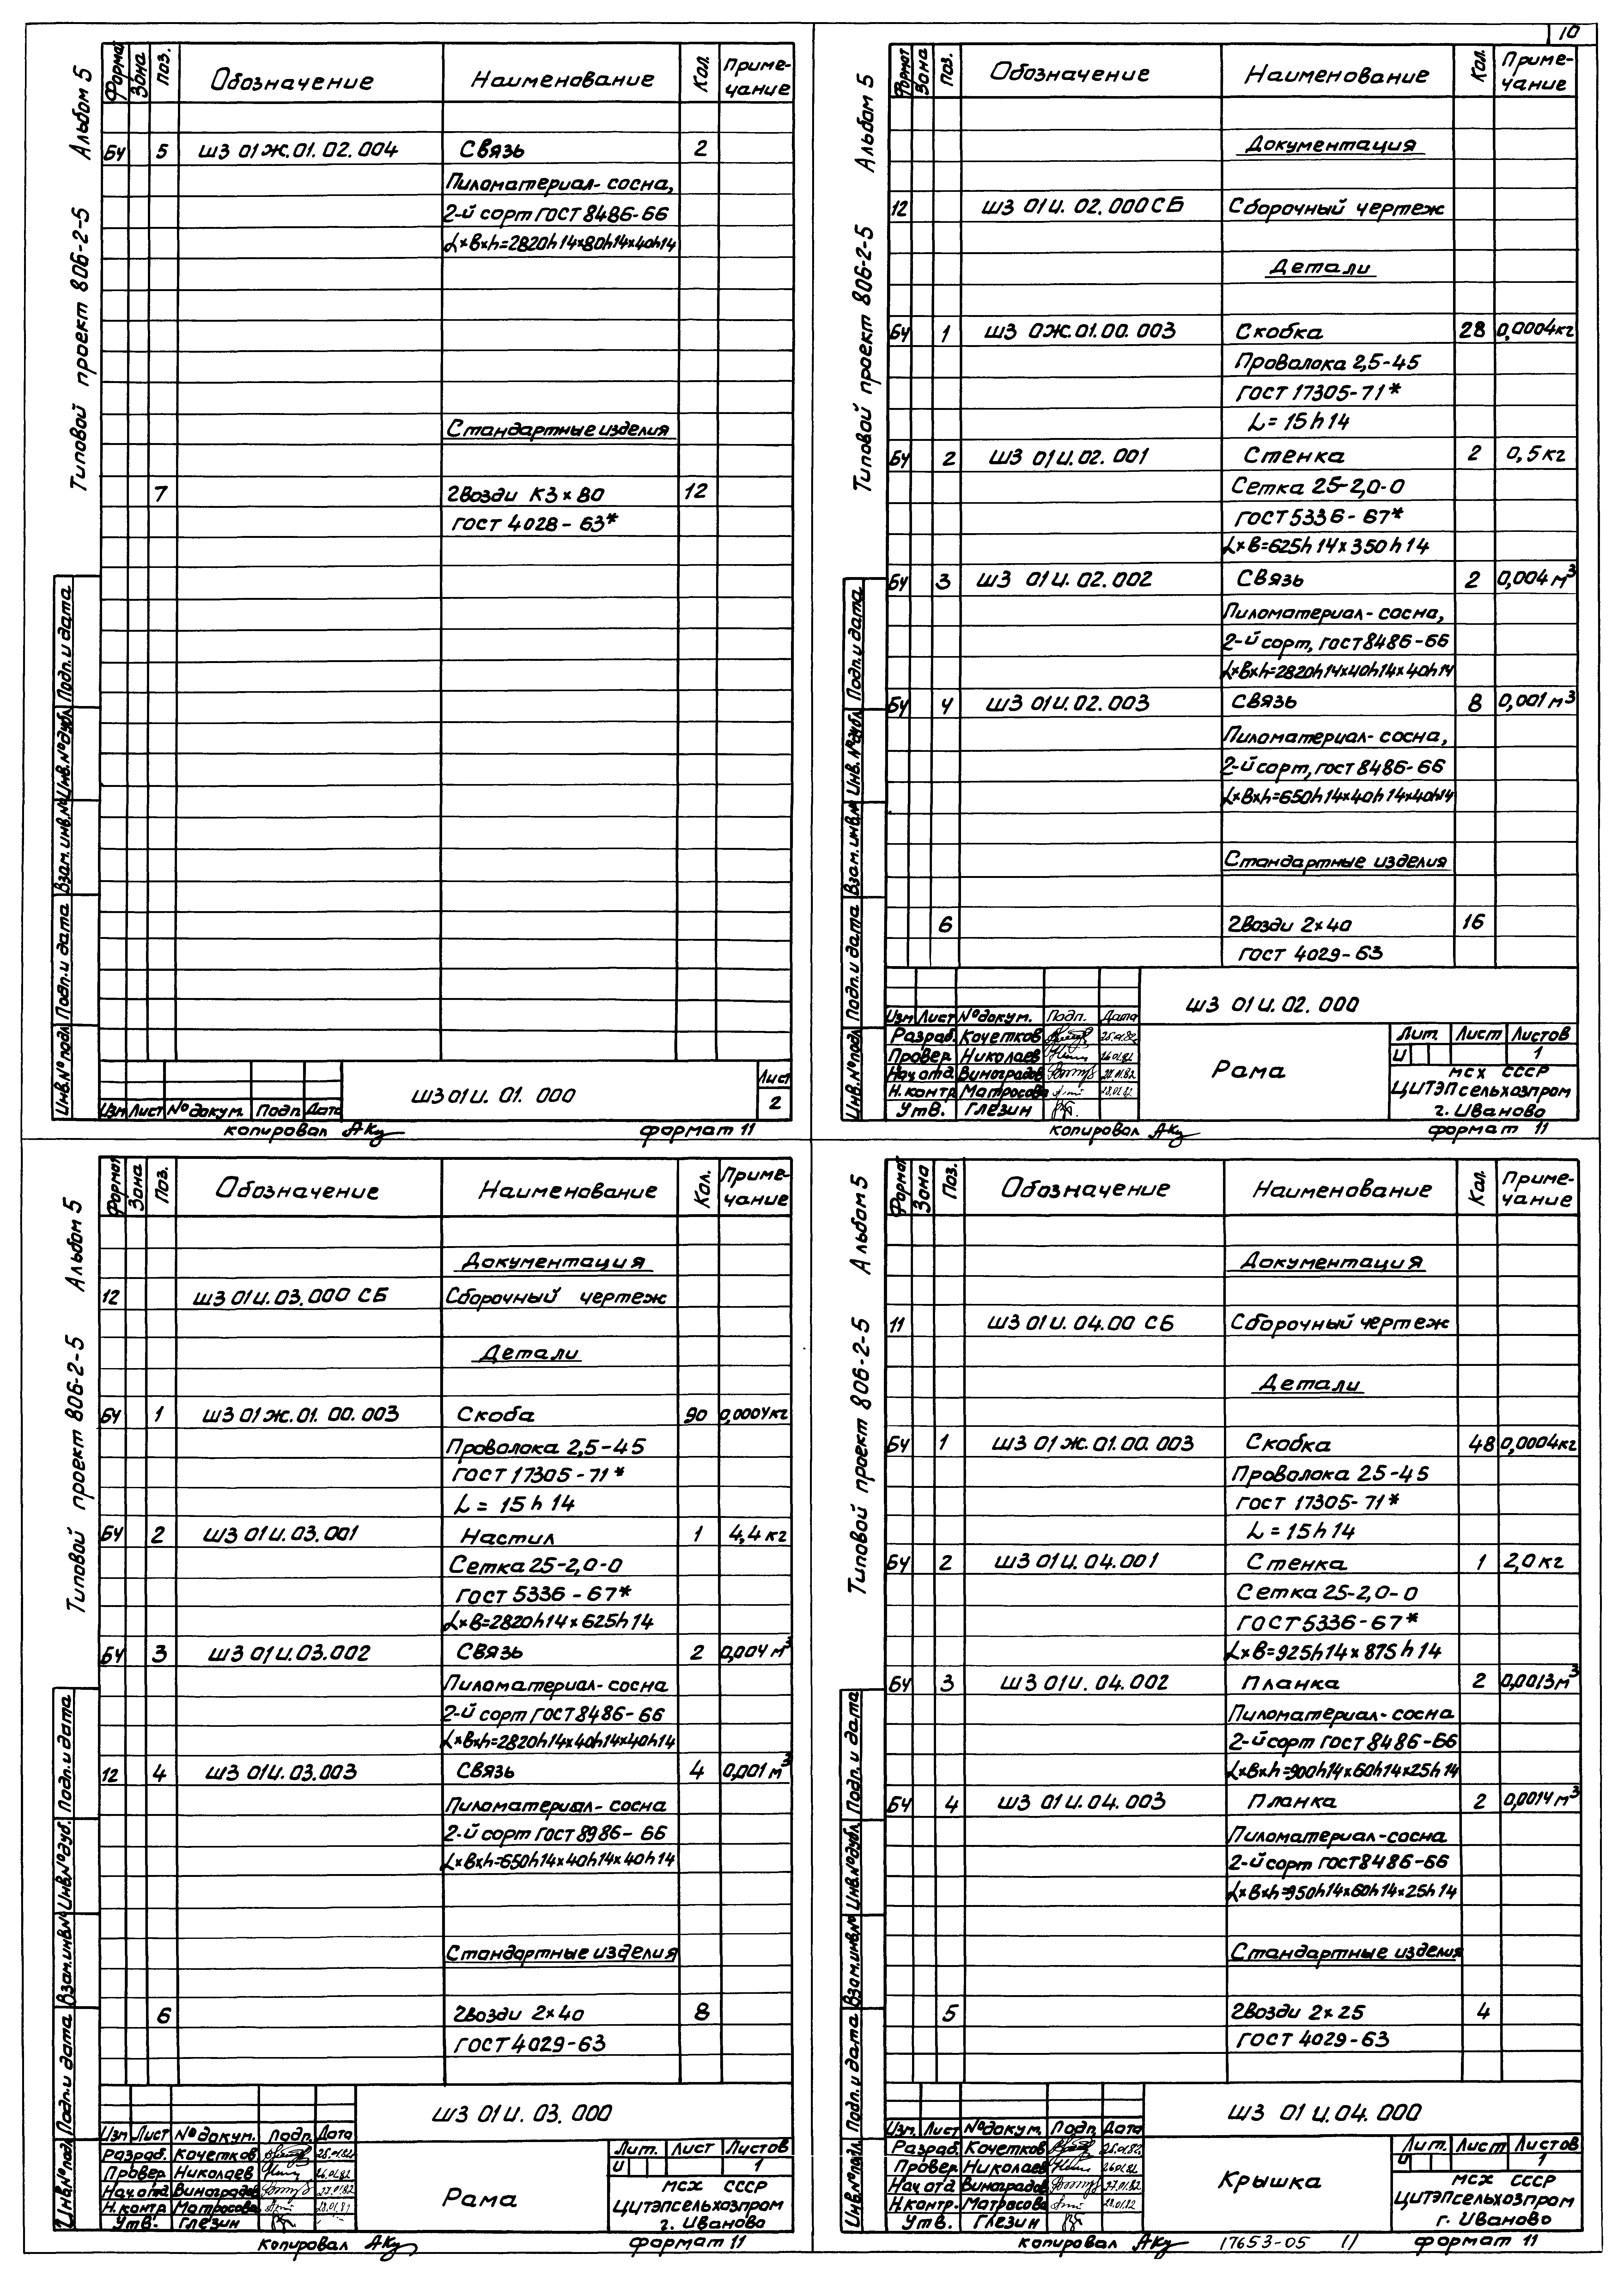 10
Типовой проект 806-2-5 Альбом 5
Формат Зона Поз. Обозначение Наименование Кол. Приме-
чание
БЧ 5 ШЗ 01Ж.01.02.004 Связь 2
Пиломатериал-сосна,
2-й сорт ГОСТ 8486-66
L×B×h=2820h14×80h14×40h14
Стандартные изделия
7 Гвозди К3×80 12
ГОСТ 4028-63*
Инв.№подл Подп.и дата Взам.инв.№ Инв.№дубл Подп.и дата
ШЗ 01И.01.000
Лист
2
Изм Лист №докум. Подп Дата
копировал
формат 11
Типовой проект 806-2-5 Альбом 5
Формат Зона Поз. Обозначение Наименование Кол. Приме-
чание
Документация
12 ШЗ 01И.02.000СБ Сборочный чертеж
Детали
БЧ 1 ШЗ 0Ж.01.00.003 Скобка 28 0,0004кг
Проволока 2,5-45
ГОСТ 17305-71*
L=15h14
БЧ 2 ШЗ 01И.02.001 Стенка 2 0,5кг
Сетка 25-2,0-0
ГОСТ 5336-67*
L×B=625h14×350h14
БЧ 3 ШЗ 01И.02.002 Связь 2 0,004м³
Пиломатериал-сосна,
2-й сорт, ГОСТ 8486-66
L×B×h=2820h14×40h14×40h14
БЧ 4 ШЗ 01И.02.003 Связь 8 0,001м³
Пиломатериал-сосна,
2-й сорт, ГОСТ 8486-66
L×B×h=650h14×40h14×40h14
Стандартные изделия
6 Гвозди 2×40 16
ГОСТ 4029-63
Инв.№подл Подп.и дата Взам.инв.№ Инв.№дубл Подп.и дата
ШЗ 01И.02.000
Изм Лист №докум. Подп. Дата
Разраб. Кочетков 25.01.82
Провер Николаев 26.01.82
Нач.отд Виноградов
Н.контр Матросова
Утв. Глезин
Рама
Лит. Лист Листов
И 1
МСХ СССР
ЦИТЭПсельхозпром
г. Иваново
копировал
формат 11
Типовой проект 806-2-5 Альбом 5
Формат Зона Поз. Обозначение Наименование Кол. Приме-
чание
Документация
12 ШЗ 01И.03.000 СБ Сборочный чертеж
Детали
БЧ 1 ШЗ 01Ж.01.00.003 Скоба 90 0,0004кг
Проволока 2,5-45
ГОСТ 17305-71*
L=15h14
БЧ 2 ШЗ 01И.03.001 Настил 1 4,4кг
Сетка 25-2,0-0
ГОСТ 5336-67*
L×B=2820h14×625h14
БЧ 3 ШЗ 01И.03.002 Связь 2 0,004м³
Пиломатериал-сосна
2-й сорт ГОСТ 8486-66
L×B×h=2820h14×40h14×40h14
12 4 ШЗ 01И.03.003 Связь 4 0,001м³
Пиломатериал-сосна
2-й сорт ГОСТ 8986-66
L×B×h=650h14×40h14×40h14
Стандартные изделия
6 Гвозди 2×40 8
ГОСТ 4029-63
Инв.№подл Подп.и дата Взам.инв.№ Инв.№дуб. Подп.и дата
ШЗ 01И.03.000
Изм. Лист №докум. Подп. Дата
Разраб. Кочетков 25.01.82
Провер Николаев 26.01.82
Нач.отд Виноградов 27.01.82
Н.контр Матросова 28.01.82
Утв. Глезин
Рама
Лит. Лист Листов
И 1
МСХ СССР
ЦИТЭПсельхозпром
г. Иваново
копировал
формат 11
Типовой проект 806-2-5 Альбом 5
Формат Зона Поз. Обозначение Наименование Кол. Приме-
чание
Документация
11 ШЗ 01И.04.00 СБ Сборочный чертеж
Детали
БЧ 1 ШЗ 01Ж.01.00.003 Скобка 48 0,0004кг
Проволока 25-45
ГОСТ 17305-71*
L=15h14
БЧ 2 ШЗ 01И.04.001 Стенка 1 2,0кг
Сетка 25-2,0-0
ГОСТ 5336-67*
L×B=925h14×875h14
БЧ 3 ШЗ 01И.04.002 Планка 2 0,0013м³
Пиломатериал-сосна
2-й сорт ГОСТ 8486-66
L×B×h=900h14×60h14×25h14
БЧ 4 ШЗ 01И.04.003 Планка 2 0,0014м³
Пиломатериал-сосна
2-й сорт ГОСТ 8486-66
L×B×h=950h14×60h14×25h14
Стандартные изделия
5 Гвозди 2×25 4
ГОСТ 4029-63
Инв.№подл. Подп.и дата Взам.инв.№ Инв.№дубл Подп.и дата
ШЗ 01И.04.000
Изм. Лист №докум. Подп Дата
Разраб. Кочетков 25.01.82
Провер. Николаев 26.01.82
Нач.отд Виноградов 27.01.82
Н.контр. Матросова 28.01.82
Утв. Глезин
Крышка
Лит. Лист Листов
И 1
МСХ СССР
ЦИТЭПсельхозпром
г. Иваново
копировал 17653-05 11 формат 11